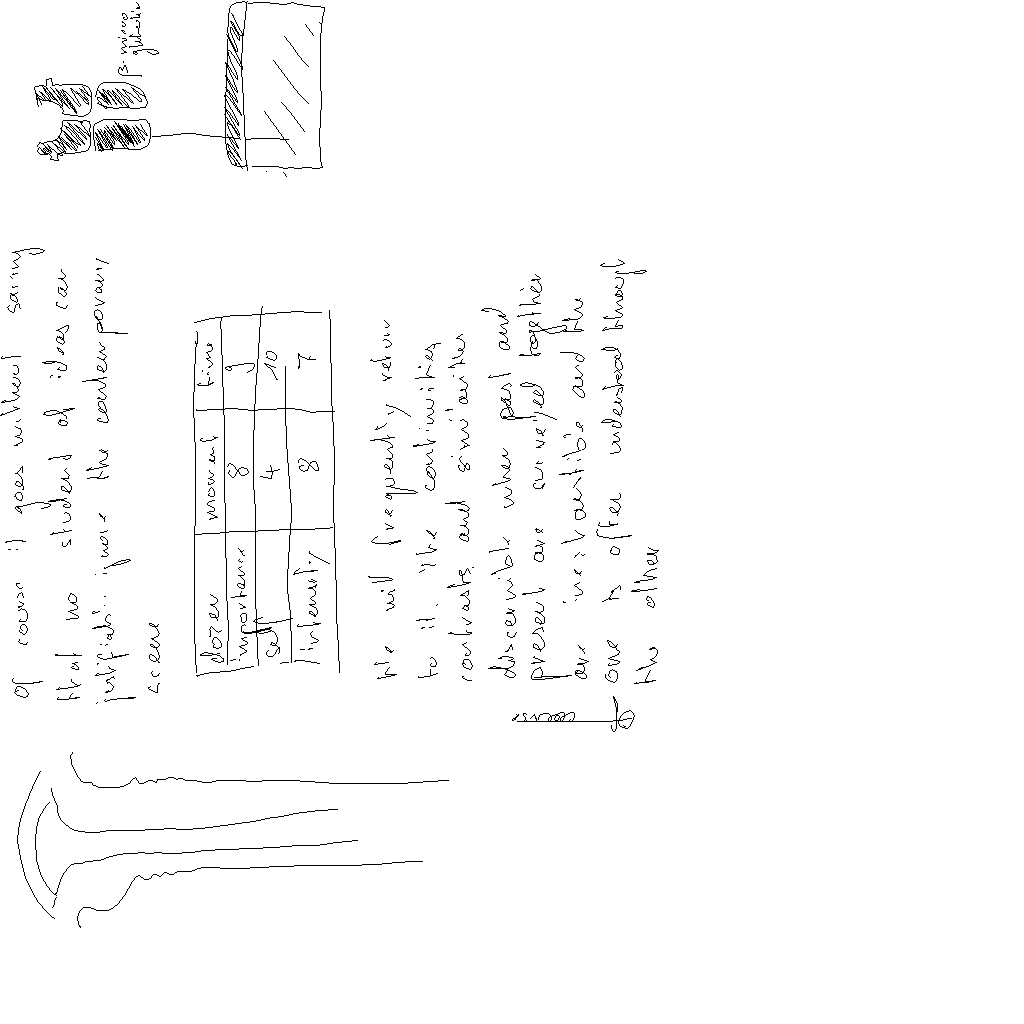 Of course it goes without saing
that no student of ideas can
ignore the contemporary
scene
dozen moment time
importance 8 9
self 4 10
intensity 8 7
We will frequently return
to it. The continuities
contrasts and similarities
discernible when past and
present are surveyed together
are inexhaustible and the
one is often understood through
the other
β-micro
globulin